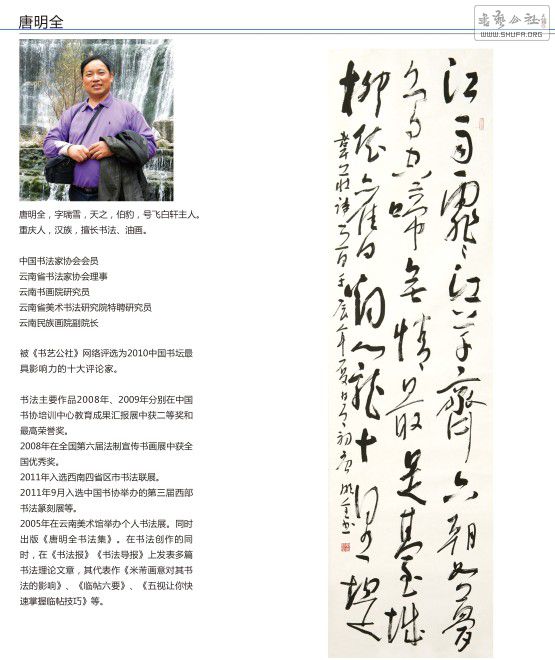 唐明全
书艺公社
WWW.SHUFA.ORG
唐明全，字瑞雪，天之，伯豹，号飞白轩主人。
重庆人，汉族，擅长书法、油画。
中国书法家协会会员
云南省书法家协会理事
云南书画院研究员
云南省美术书法研究院特聘研究员
云南民族画院副院长
被《书艺公社》网络评选为2010中国书坛最
具影响力的十大评论家。
书法主要作品2008年、2009年分别在中国
书协培训中心教育成果汇报展中获二等奖和
最高荣誉奖。
2008年在全国第六届法制宣传书画展中获全
国优秀奖。
2011年入选西南四省区市书法联展。
2011年9月入选中国书协举办的第三届西部
书法篆刻展等。
2005年在云南美术馆举办个人书法展。同时
出版《唐明全书法集》。在书法创作的同
时，在《书法报》《书法导报》上发表多篇
书法理论文章，其代表作《米芾画意对其书
法的影响》、《临帖六要》、《五视让你快
速掌握临帖技巧》等。
江雨霏霏江草齊六朝如夢
鳥空啼無情最是臺城
柳依舊烟籠十里堤